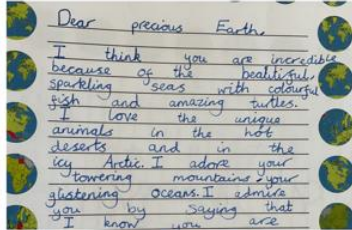 Dear precious Earth,
I think you are incredible
because of the beatiful,
sparkling seas with colourful
fish and amazing turtles.
I love the unique
animals in the hot
deserts and in the
icy Arctic. I adore your
towering mountains + your
glistening oceans. I admire
you by saying that
I know you are